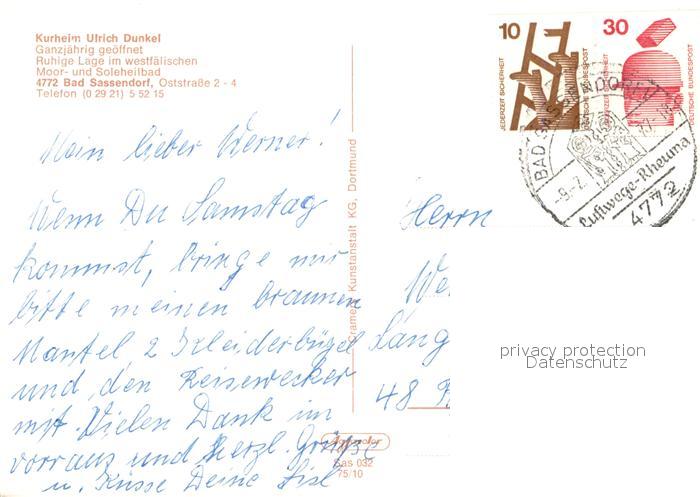 Kurheim Ulrich Dunkel
Ganzjährig geöffnet
Ruhige Lage im westfälischen
Moor- und Soleheilbad
4772 Bad Sassendorf, Oststraße 2 - 4
Telefon (0 29 21) 5 52 15
10
JEDERZEIT SICHERHEIT
DEUTSCHE BUNDESPOST
30
JEDERZEIT SICHERHEIT
DEUTSCHE BUNDESPOST
BAD SASSENDORF
-9.-7.
Luftwege-Rheuma
4772
Mein lieber Werner!
Wenn Du Samstag
kommst, bringe mir
bitte meinen braunen
Mantel 2 Kleiderbügel
und den Reisewecker
mit. Vielen Dank im
vorraus und Herzl. Grüße
u. Küsse Deine Lisl
Herrn
We
Lang
48
Kunstanstalt KG, Dortmund
Sas 032
75/10
privacy protection
Datenschutz